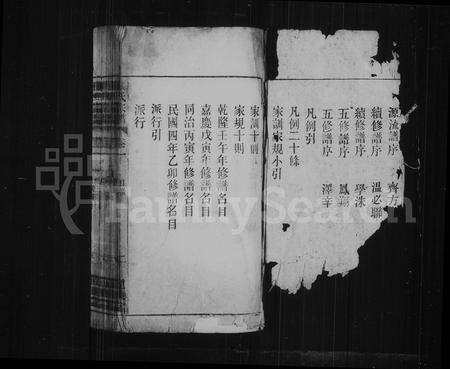 源流譜序 齊方
續修譜序 溫必聯
續修譜序 學洙
五修譜序 鳳翔
五修譜序 澤辛
凡例引
凡例二十條
家訓家規小引
家訓十則
家規十則
乾隆壬午年修譜名目
嘉慶戊寅年修譜名目
同治丙寅年修譜名目
民國四年乙卯修譜名目
派行引
派行
FamilySearch